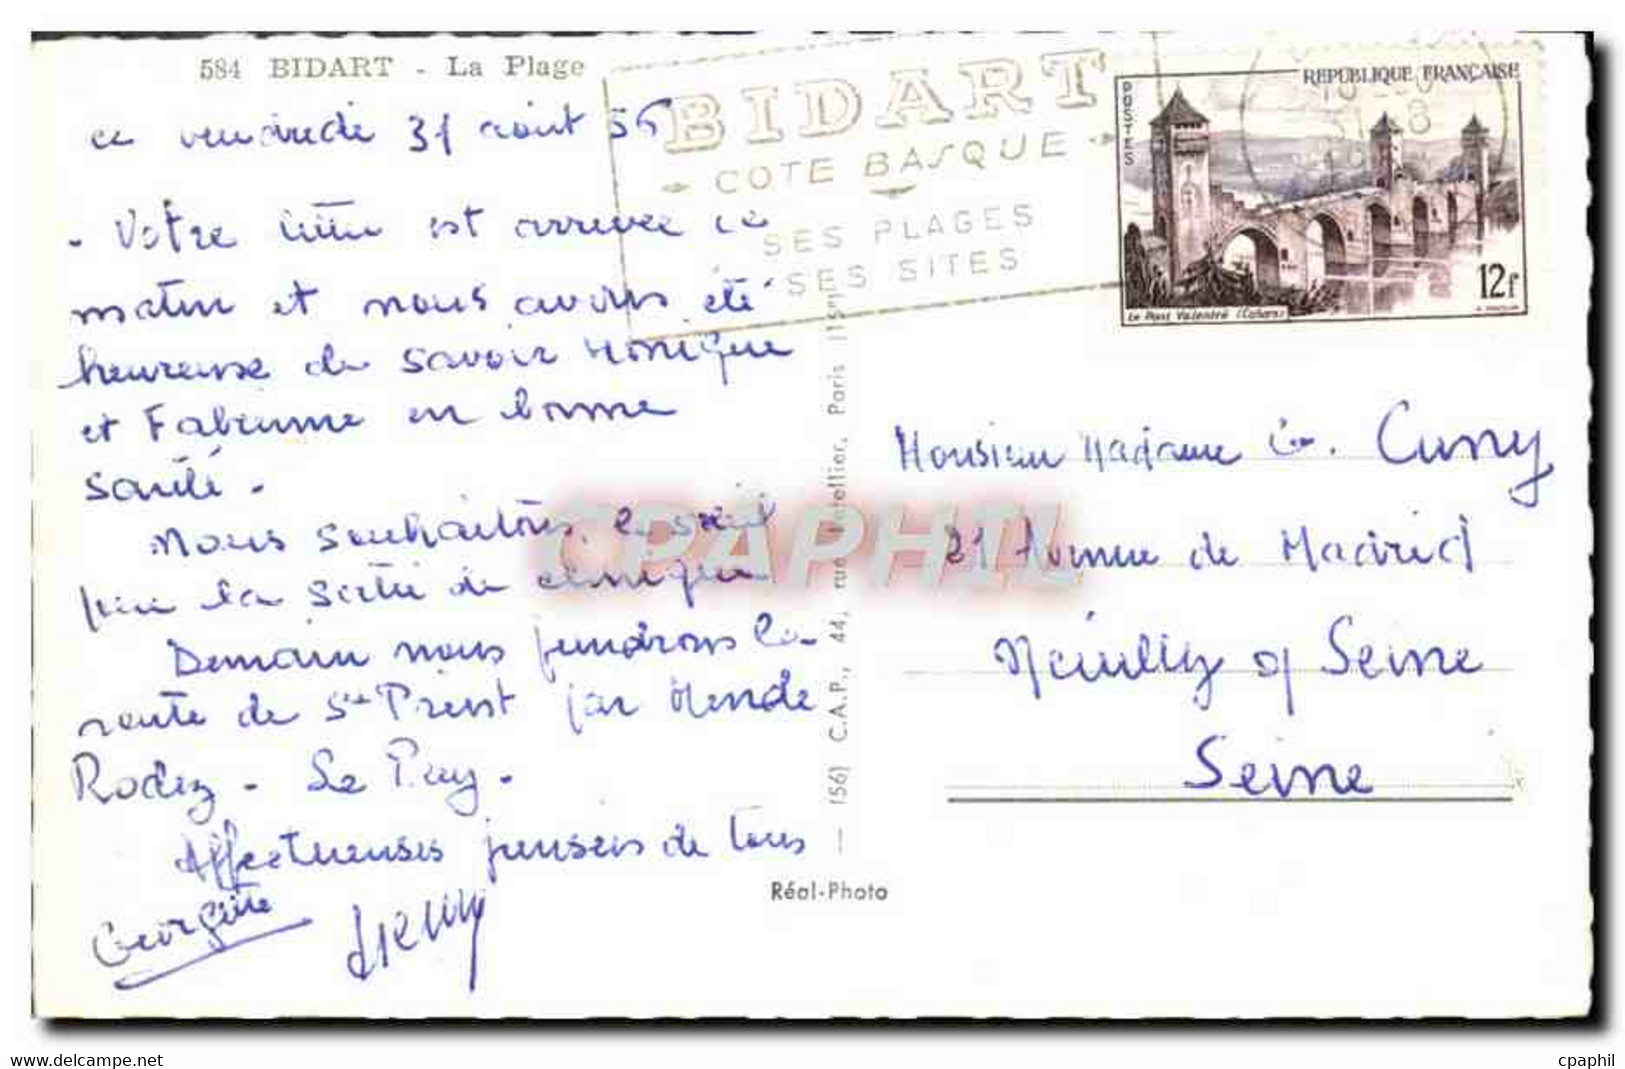 584 BIDART - La Plage
ce vendredi 31 août 56
BIDART
COTE BASQUE
SES PLAGES
SES SITES
POSTES
REPUBLIQUE FRANÇAISE
12F
Le Pont Valentré (Cahors)
- Votre lettre est arrivée ce
matin et nous avons été
heureuse de savoir Monique
et Fabienne en bonne
santé.
Nous souhaitons le soleil
pour la sortie de clinique
Demain nous prendrons la
route de St Priest par Mende
Rodez - Le Puy.
Affectueuses pensées de tous
Georgette
(56) C.A.P., 44, rue Letellier, Paris (15e)
Réal-Photo
Monsieur Madame G. Cuny
21 Avenue de Madrid
Neuilly s/ Seine
Seine
CPAPHIL
www.delcampe.net
cpaphil